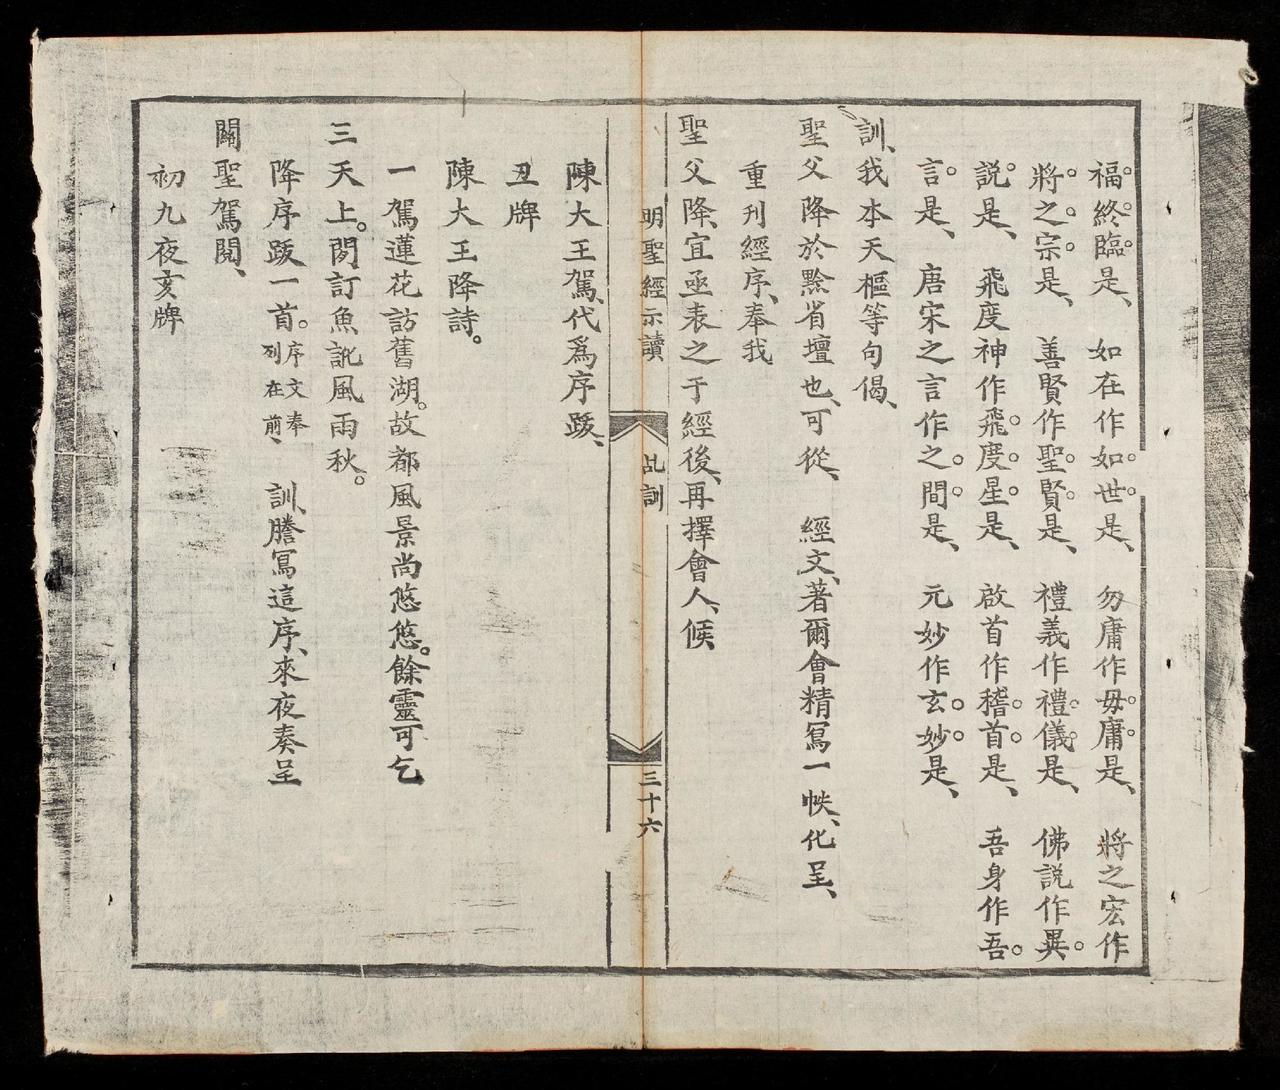 福終臨是、如在作如世是、勿庸作毋庸是、將之宏作
將之宗是、善賢作聖賢是、禮義作禮儀是、佛説作異
説是、飛度神作飛度星是、啟首作稽首是、吾身作吾
言是、唐宋之言作之間是、元妙作玄妙是、
訓、我本天樞等句偈、
聖父降於黔省壇也、可從、經文、著爾會精冩一帙、化呈、
重刋經序、奉我
聖父降、宜亟表之于經後、再擇會人、候
明聖經示讀
乩訓
三十六
陳大王駕、代爲序跋、
丑牌
陳大王降詩。
一駕蓮花訪舊湖。故都風景尚悠悠。餘靈可乞
三天上。閲訂魚訛風雨秋。
降序跋一首。序文奉列在前、訓、謄冩這序、來夜奏呈
關聖駕閲、
初九夜亥牌